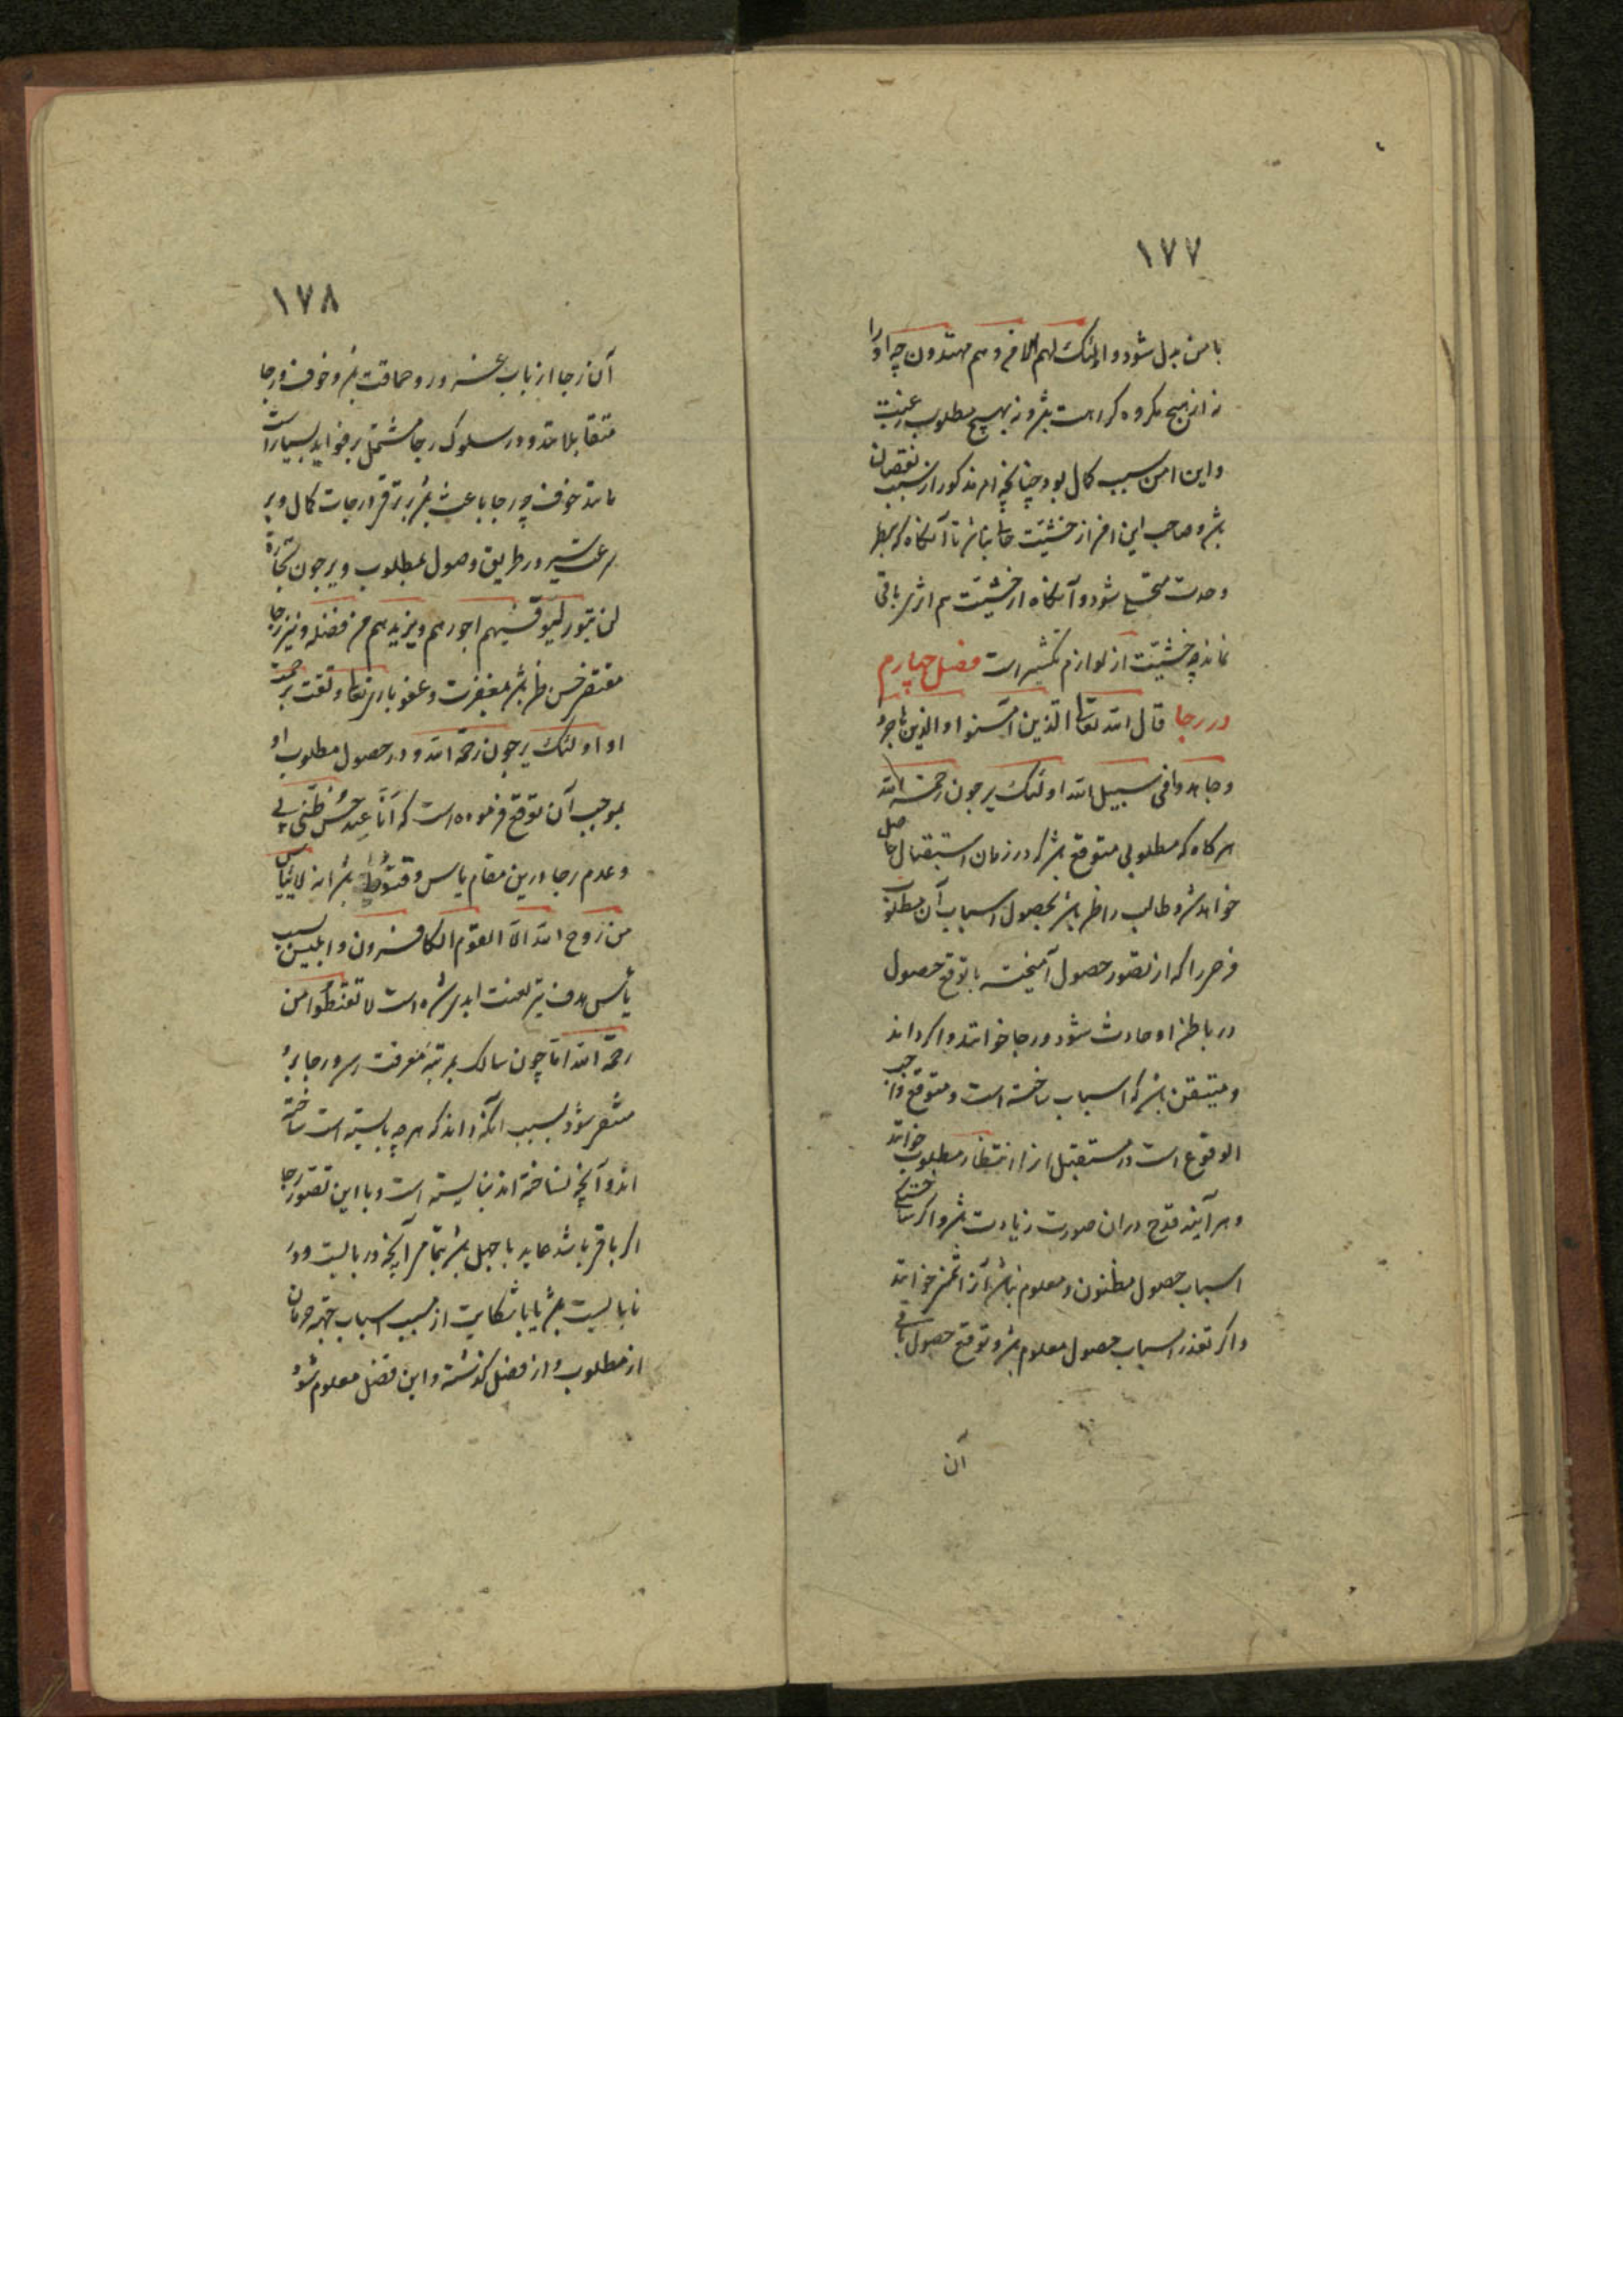 ١٧٧
بامن بدل شود و اولئک لهم الامن و هم مهتدون چه او را
نه از هیچ مکروه کراهت باشد و نه بهیچ مطلوب رغبت
و این امن سبب کمال بود چنانچه امن مذکور از سبب نقصان
باشد و صاحب این امن از خشیت خالی نباشد تا آنگاه که بنظر
وحدت متجلی شود و آنگاه از خشیت هم اثر باقی
نماند چه خشیت از لوازم تکثیر است فصل چهارم
در رجا قال الله تعالی الذین امنوا و الذین هاجروا
و جاهدوا فی سبیل الله اولئک یرجون رحمة الله
هر کاه که مطلوبی متوقع باشد که در زمان استقبال حاصل
خواهد شد و طالب را ظن باشد بحصول اسباب آن مطلوب
فرحی را که از تصور حصول آمیخته با توقع حصول
در باطن او حادث شود رجا خوانند و اکر داند
و متیقن باشد که اسباب ساخته است و متوقع واجب
الوقوع است در مستقبل انرا انتظار مطلوب خوانند
و هر آینه فرح در ان صورت زیادت باشد و اکر ساختگی
اسباب حصول مظنون و معلوم نباشد آنرا تمنی خوانند
و اکر تعذر اسباب حصول معلوم باشد و توقع حصول باقی
آن
١٧٨
آن رجا از باب غرور و حماقت باشد و خوف و رجا
متقابلانند و در سلوک رجا مشتمل بر فواید بسیار است
مانند خوف چه رجا باعث باشد بر ترقی درجات کمال و بر
سرعت سیر در طریق وصول بمطلوب و یرجون تجارة
لن تبور لیوفیهم اجورهم و یزیدهم من فضله و نیز رجا
مقتضی حسن ظن باشد بمغفرت و عفو باری تعالی و ثقت بر رحمت
او اولئک یرجون رحمة الله و در حصول مطلوب او
بموجب آن توقع فرموده است که أنا عند حسن ظن عبدی بی
و عدم رجا درین مقام یاس و قنوط باشد انه لا ییأس
من روح الله الا القوم الکافرون و ابلیس بسبب
یأس هدف تیر لعنت ابدی شده است لا تقنطوا من
رحمة الله اما چون سالک بمرتبه معرفت رسد رجا برو
منتفی شود بسبب آنکه داند که هر چه بایسته است ساخته
اند و آنچه نساخته اند نبایسته است و با این تصور رجا
اکر باقی باشد عاید با جهل باشد بتمامی آنچه در بایست و در
نابایست باشد یا با شکایت از مسبب اسباب جهة حرمان
از مطلوب و از فصل کذشته و این فصل معلوم شود